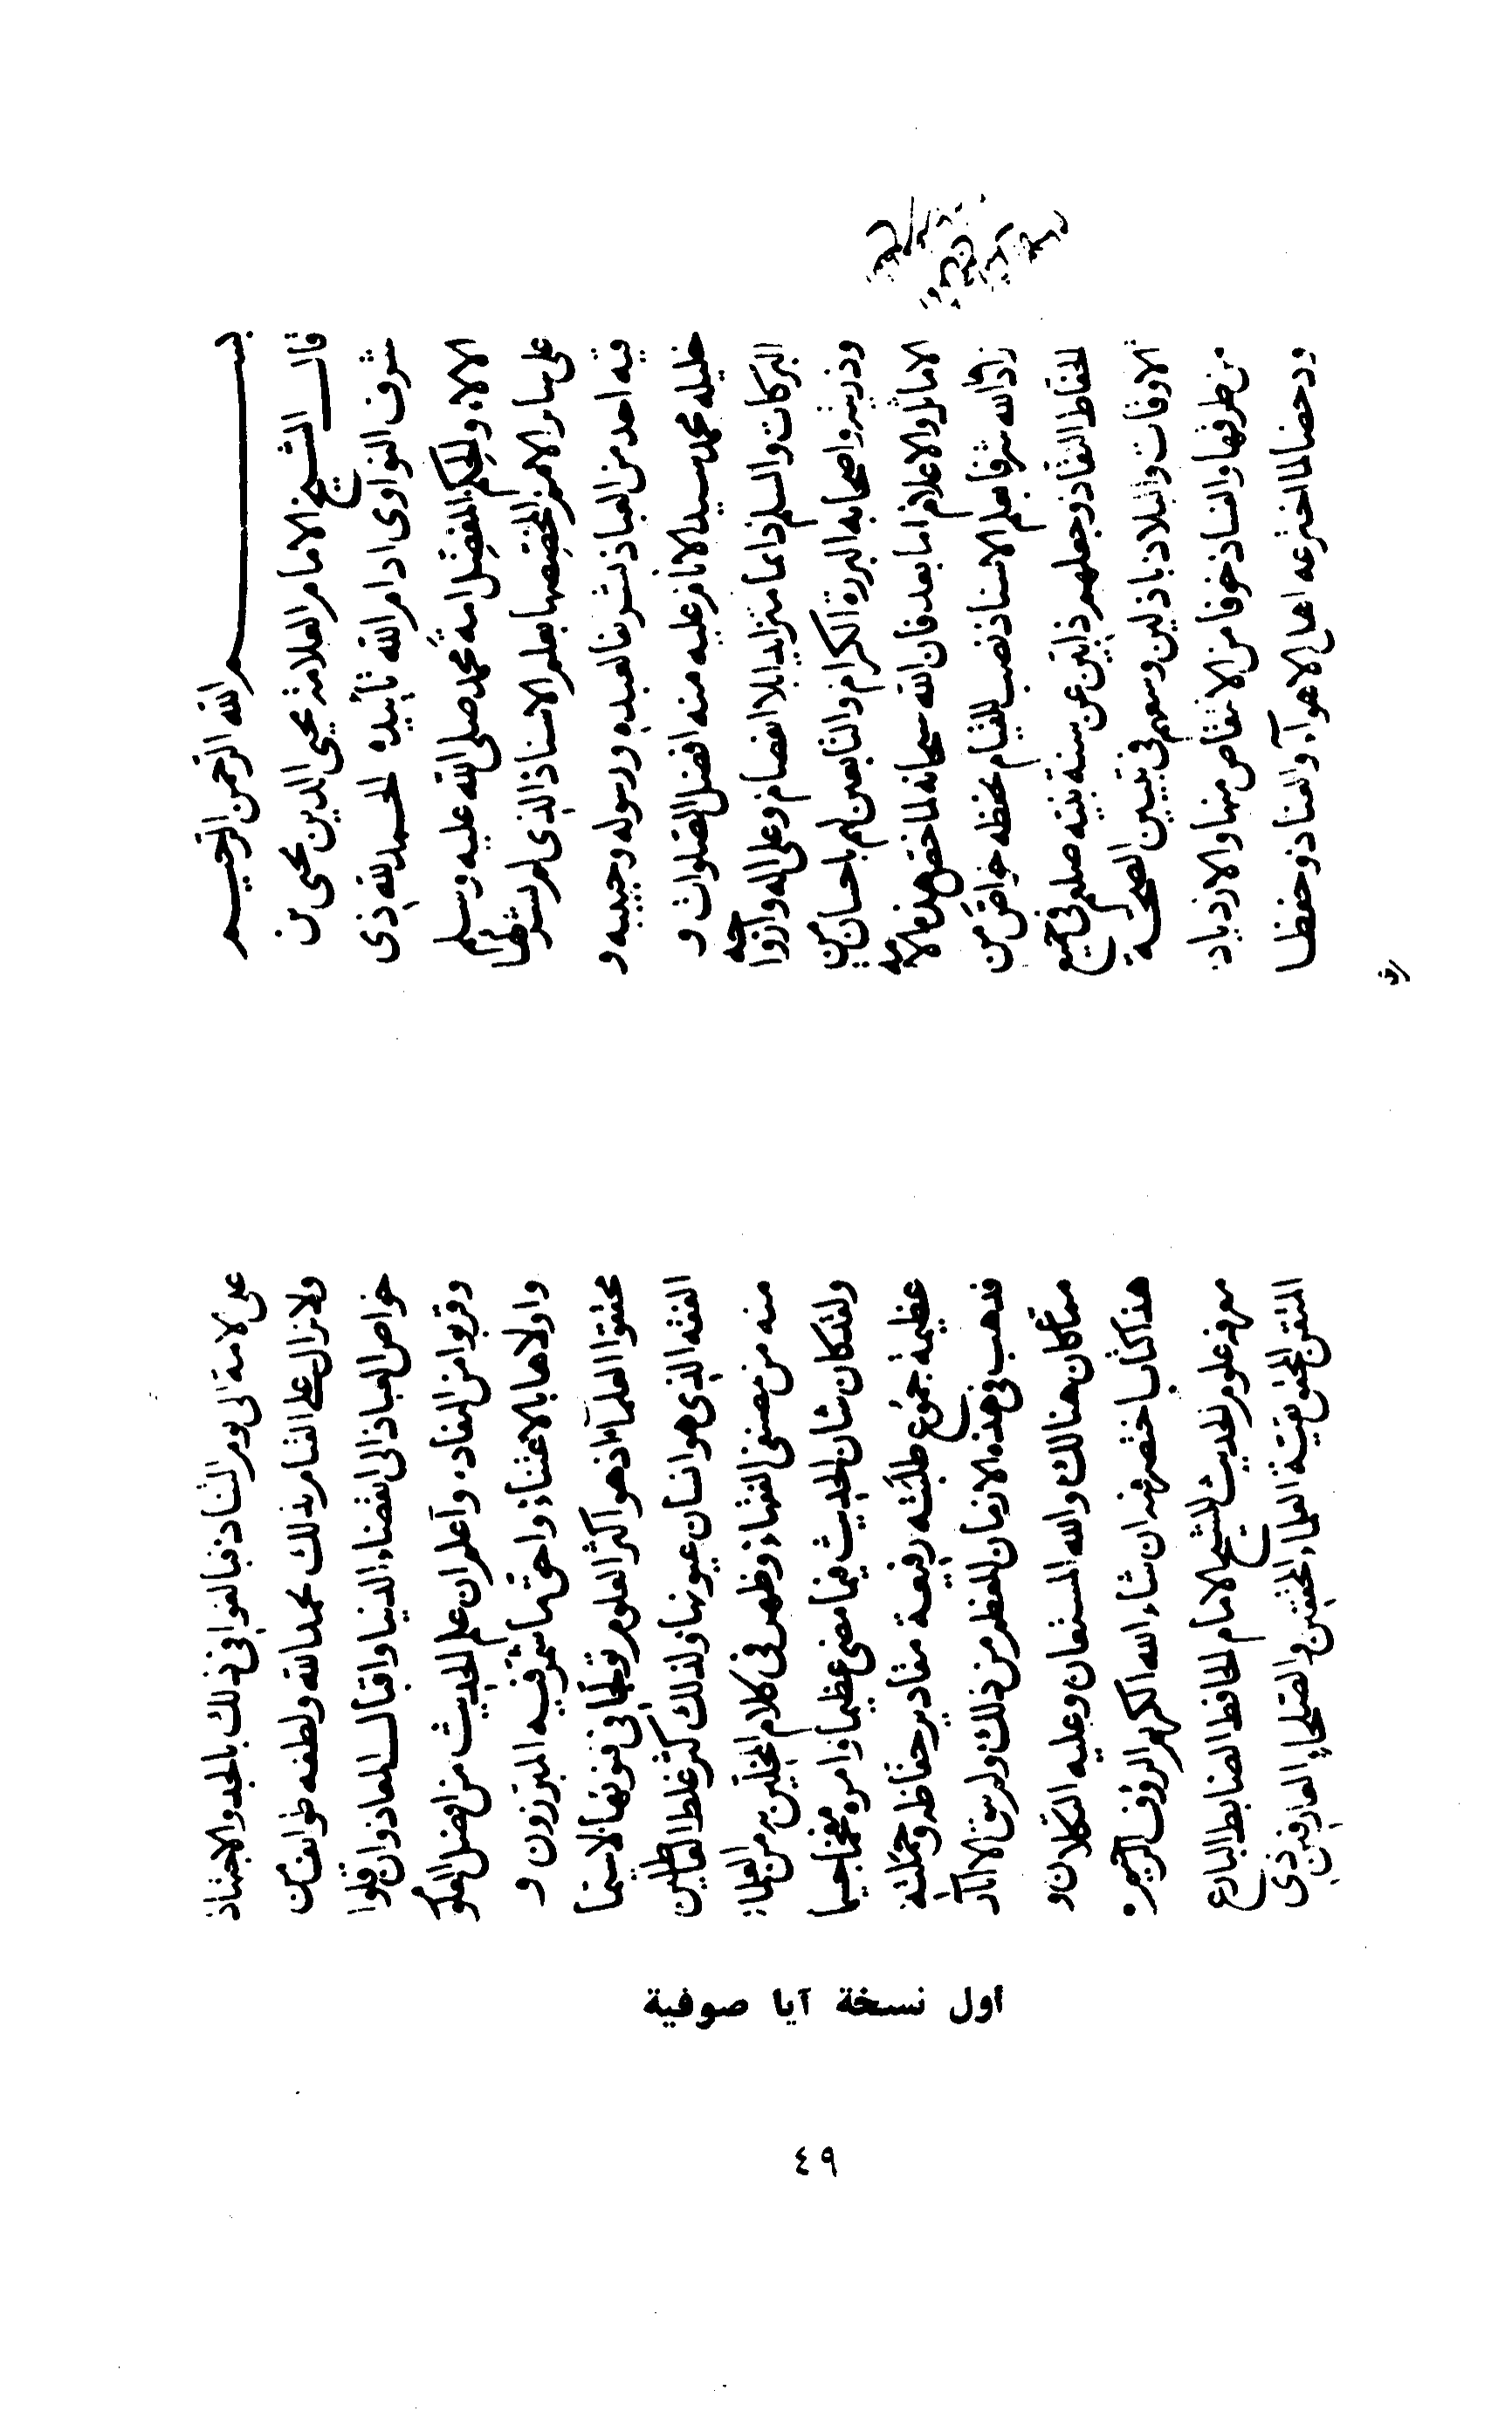 بسم الله الرحمن الرحيم
قال الشيخ الامام العلامة محيى الدين يحيى بن
شرف النواوى ادام الله تأييده الحمد لله ذى
الالاء والحكم المفضل امة محمد صلى الله عليه وسلم
على سائر الامم المخصصها بعلم الاسناد الذى لم يشركها
فيه احد من العباد تشريفا لعبده ورسوله وحبيبه و
خليله محمد سيد الانام عليه منه افضل الصلوات و
البركات والسلم دايما متزايدا بلا انفصام وعلى اله وازواجه
وذريته واصحابه البررة الكرام والتابعين لهم باحسان من
الاماثل والاعلام اما بعد فان الله سبحانه لما خص هذه الامة
زادها الله شرفا بعلم الاسناد نصب للقيام بحفظه خواص من
الحفاظ النقاد وجعلهم ذابين عن سنة نبيه صلعم فى جميع
الاوقات والبلاد باذلين وسعهم فى تبيين الصحة
من طرقها والفساد خوفا من الانتقاص منها والازدياد
ودحضا لما اخترعه اهل الاهوآء والعناد وحفظا
على الامة الى يوم التناد فبالغوا فى ذلك بالجد والاجتهاد
ولا يزال على القيام بذلك بحمد الله ولطفه طوائف من
خواص العباد الى انقضاء الدنيا واقبال المعاد وان قلوا
وقربوا من النفاد، واعلم ان علم الحديث من افضل العلو
واولاها بالاعتناء واحق ما شمر فيه المبرزون و
محققوا العلماء اذ هو اكثر العلوم تولجا فى فنونها لا سيما
الفقه الذى هو انسان عيونها ولذلك كثر غلط العاطلين
منه من مصنفى الفقهاء وظهر فى كلام المخلين به من العلماء
ولقد كان شان الحديث فيما مضى عظيما وامره مفخما جسيما
عظيمة جموع طلبته رفيعة مقادير حفاظه وحملته
فذهب فى هذه الازمان المعظم من ذلك ولم يبق الا اثار
مما كان هنالك والله المستعان وعليه التكلان و
هذا كتاب اختصر فيه ان شاء الله الكريم الرؤف الرحيم
معرفة علوم الحديث للشيخ الامام الحافظ الضابط البارع
المتقن المحقق بقية العلماء المحققين والصلحاء العارفين ذى
اول نسخة آيا صوفية
٤٩